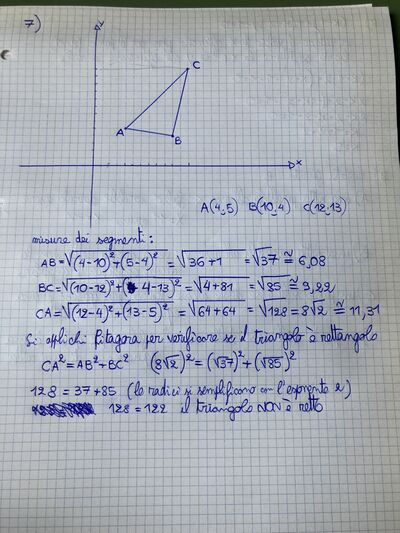 7)
y
C
A
B
x
A(4,5) B(10,4) C(12,13)
misure dei segmenti:
AB=√(4-10)²+(5-4)² = √36+1 = √37 ≅ 6,08
BC=√(10-12)²+(4-13)² = √4+81 = √85 ≅ 9,22
CA=√(12-4)²+(13-5)² = √64+64 = √128 = 8√2 ≅ 11,31
Si applichi Pitagora per verificare se il triangolo è rettangolo
CA²=AB²+BC² (8√2)²=(√37)²+(√85)²
128 = 37+85 (le radici si semplificano con l'esponente 2)
128 = 122 il triangolo NON è retto